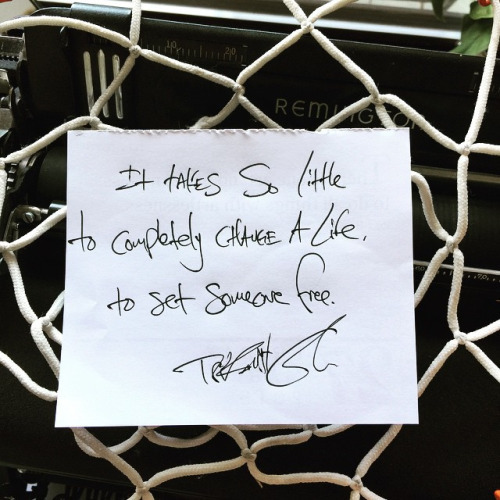 REMINGTON
It takes so little
to completely change a life.
to set someone free.